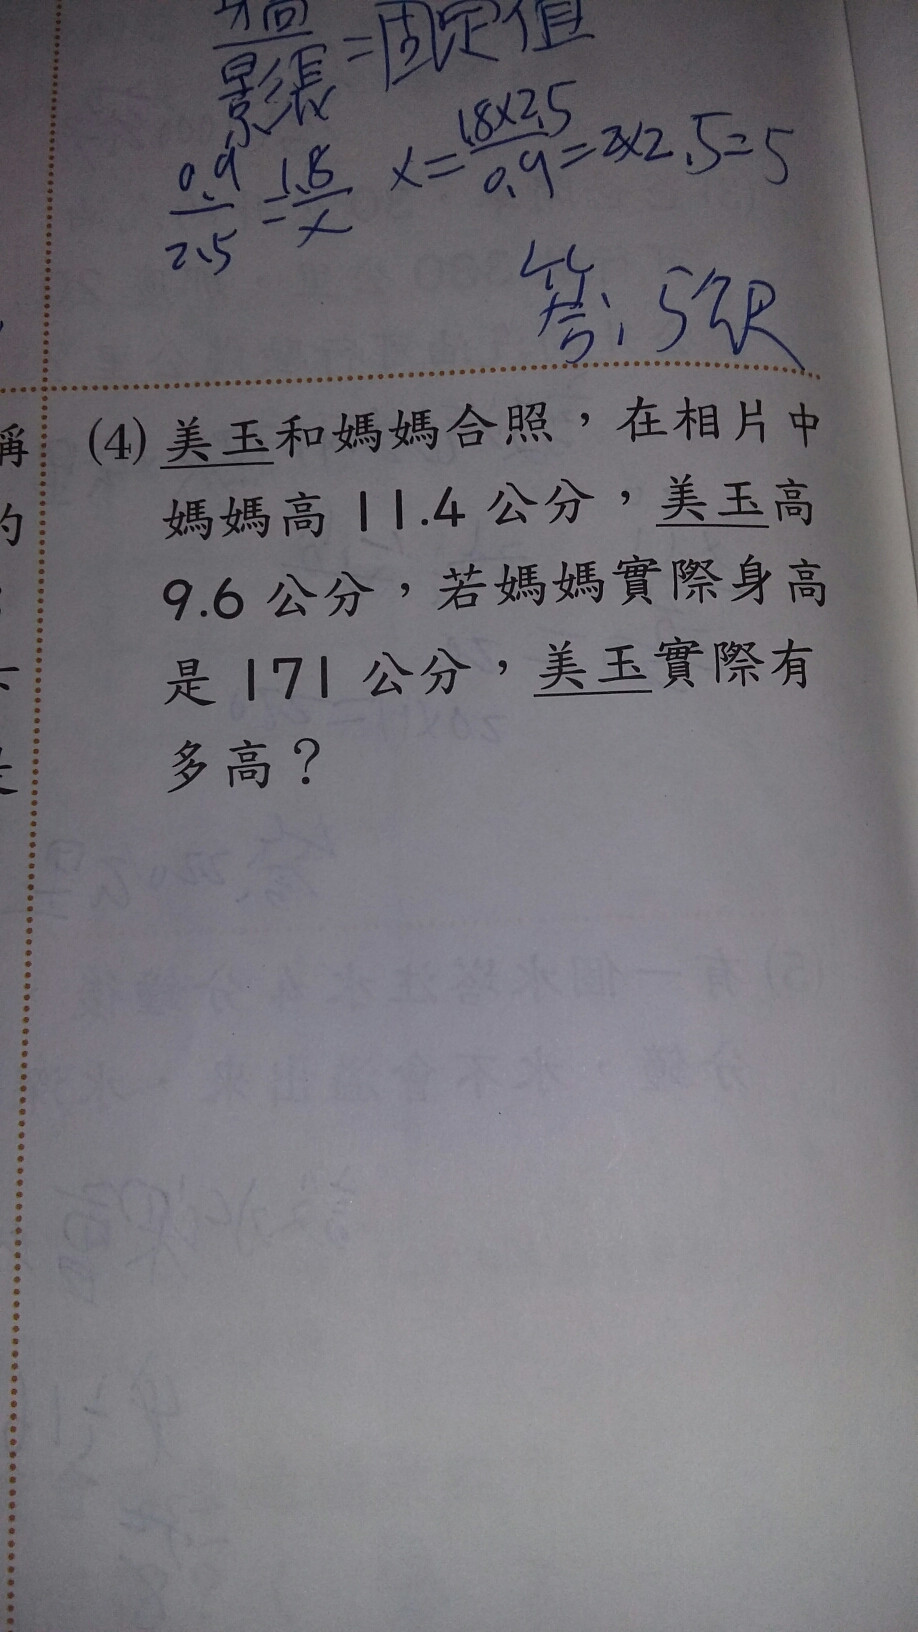 身高
影長 = 固定值
0.9/2.5 = 1.8/x x = 1.8×2.5/0.9 = 2×2.5=5
答: 5
(4) 美玉和媽媽合照，在相片中
媽媽高 11.4 公分，美玉高
9.6 公分，若媽媽實際身高
是 171 公分，美玉實際有
多高？
稱
的